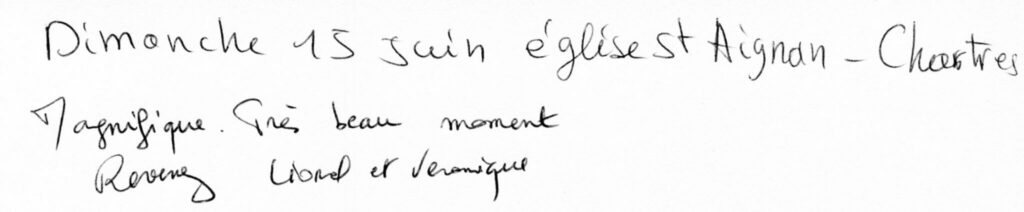 Dimanche 15 juin église st Aignan - Chartres
Magnifique. Très beau moment
Revenez Lionel et Véronique